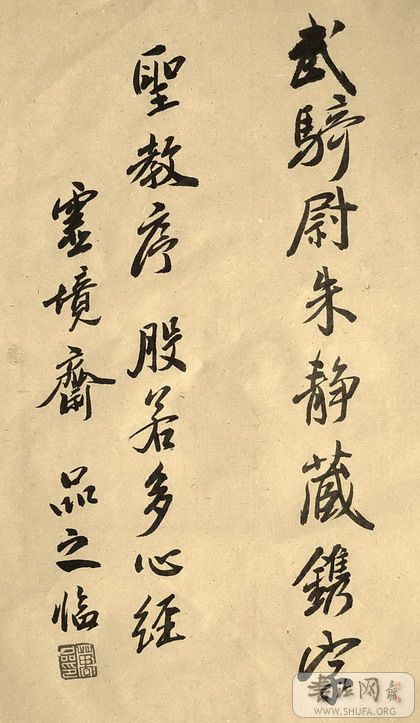 武騎尉朱静藏鐫字
聖教序 般若多心經
靈境齋 品之臨
书法网
WWW.SHUFA.ORG